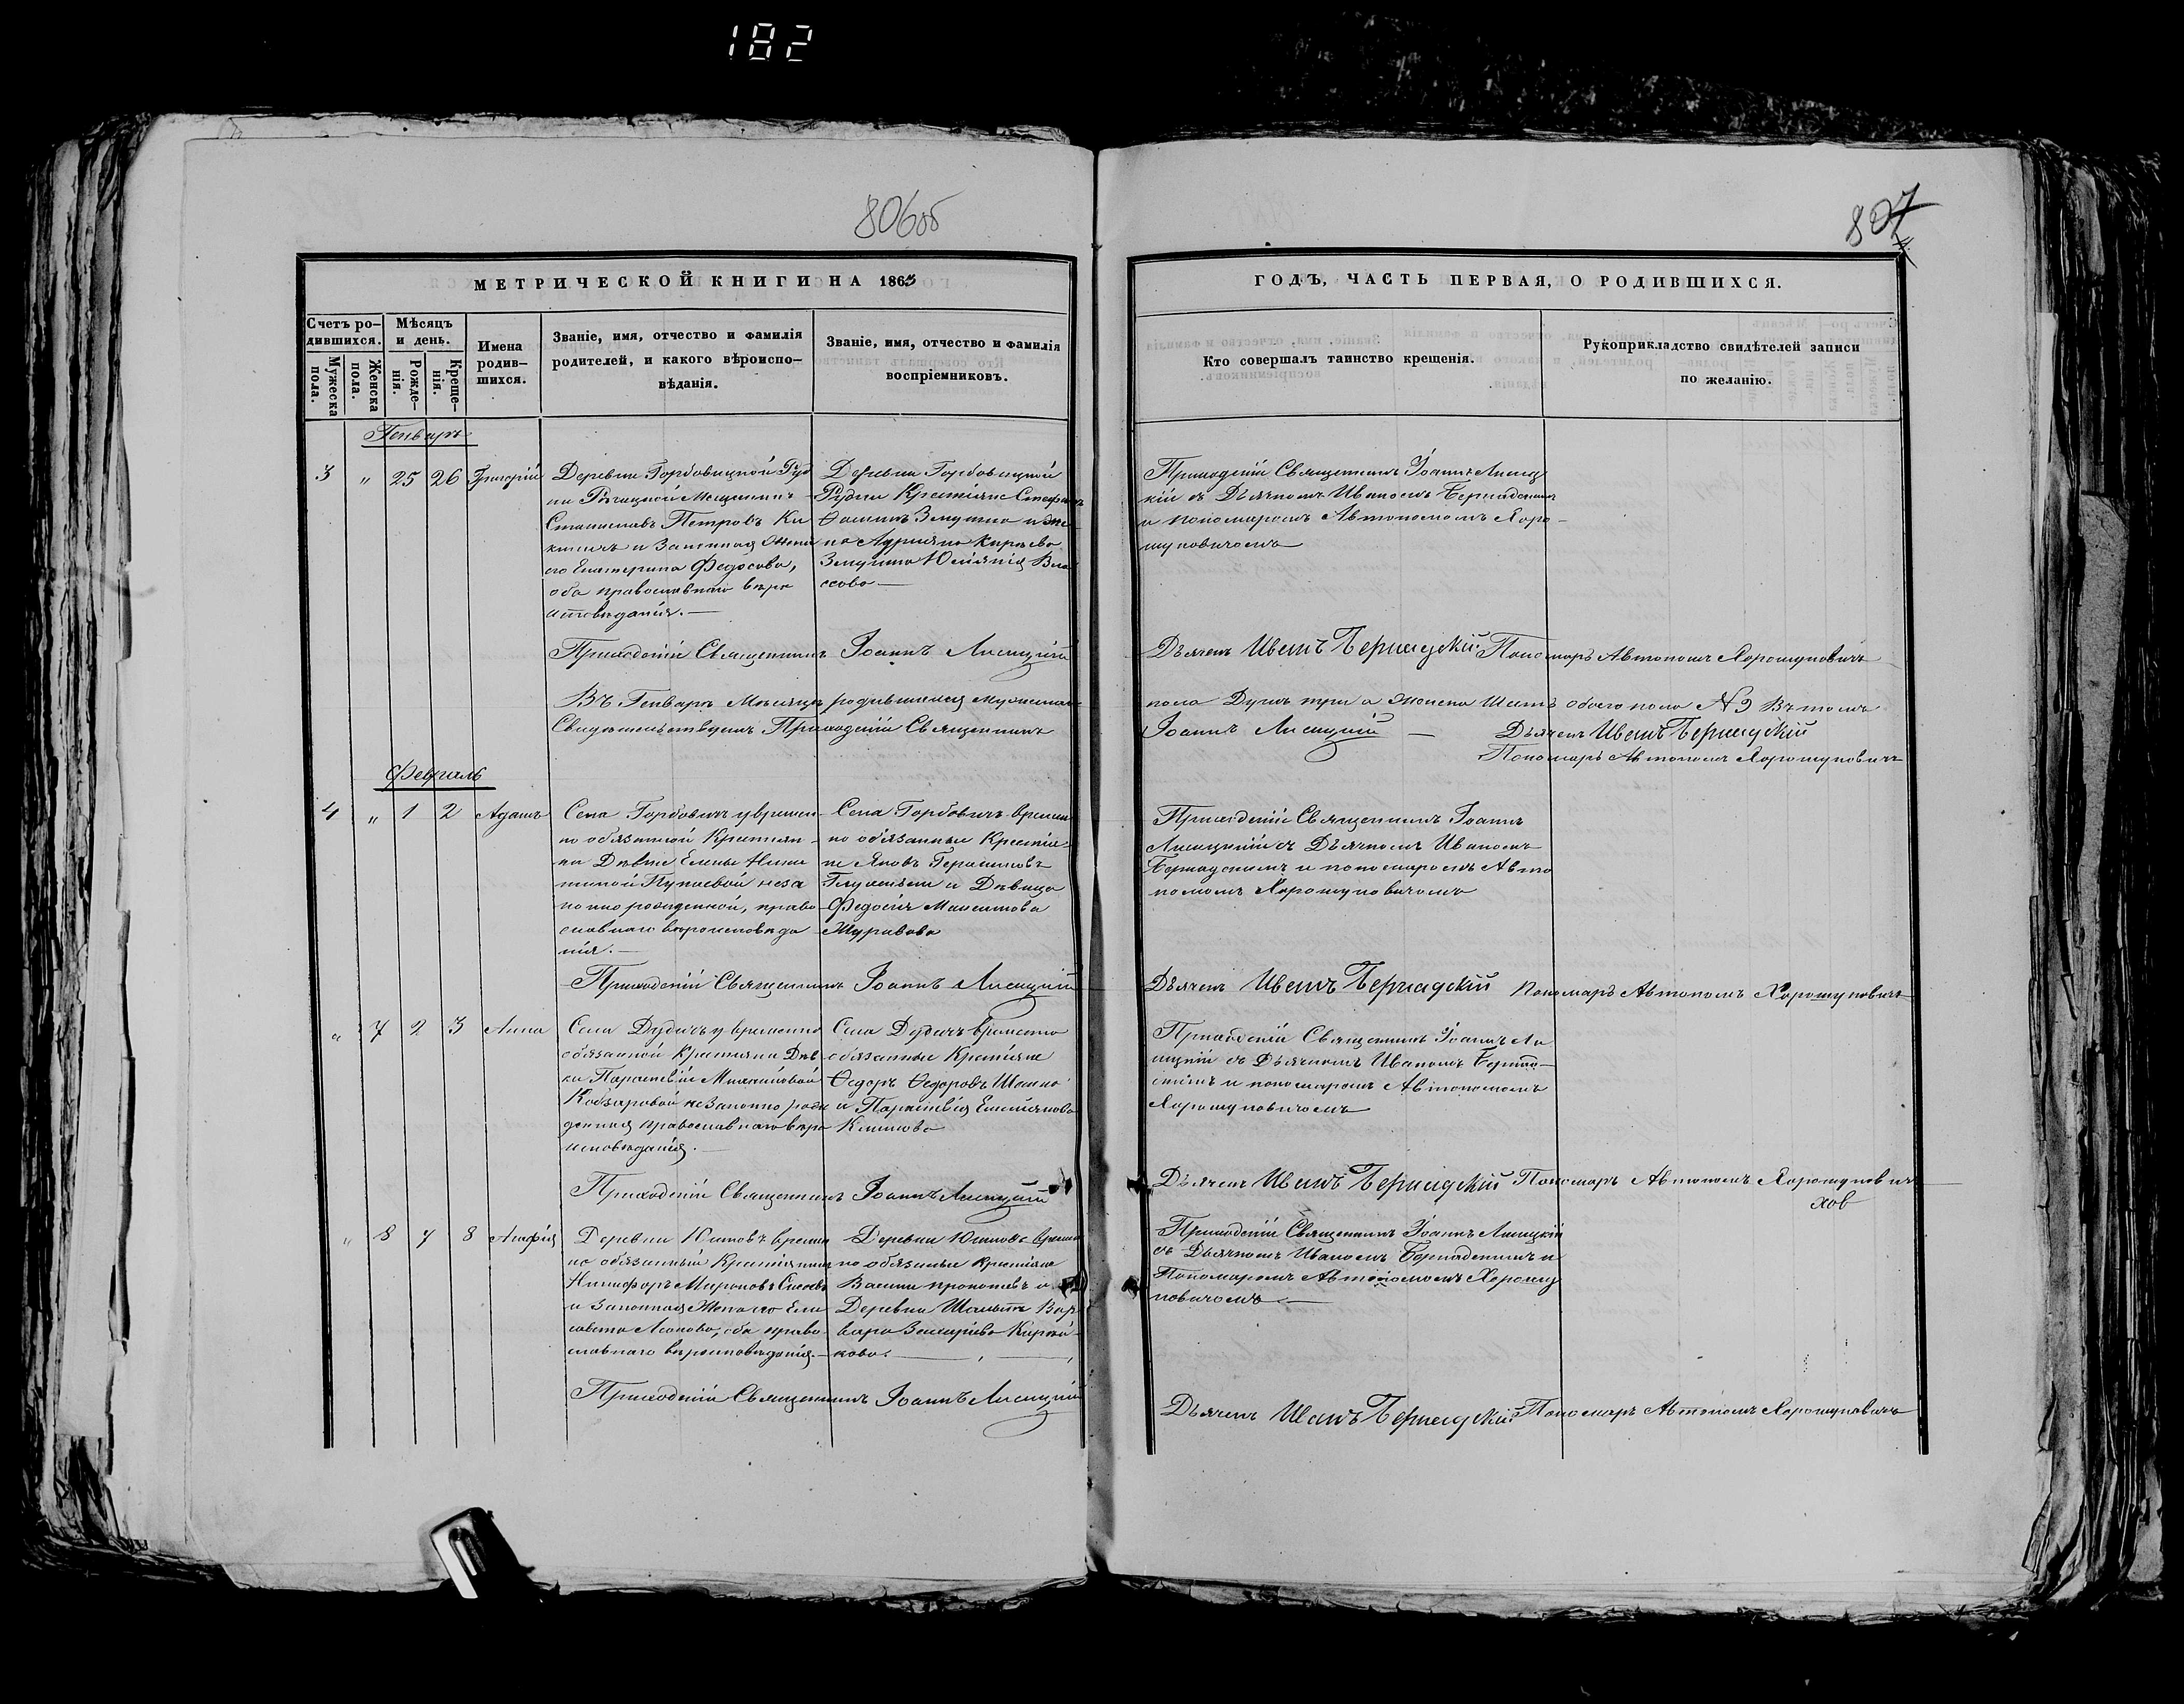 182
806об
807
МЕТРИЧЕСКОЙ КНИГИ НА 1863
ГОДЪ, ЧАСТЬ ПЕРВАЯ, О РОДИВШИХСЯ.
Счетъ ро-
дившихся.
Мужеска
пола.
Женска
пола.
Мѣсяцъ
и день.
Рожде-
нія.
Креще-
нія.
Имена
родив-
шихся.
Званіе, имя, отчество и фамилія
родителей, и какого вѣроиспо-
вѣданія.
Званіе, имя, отчество и фамилія
воспріемниковъ.
Кто совершалъ таинство крещенія.
Рукоприкладство свидѣтелей записи
по желанію.
Генварь
3 " 25 26 Григорій
Деревни Горбовицкой Руд
ни Рѣчицкой Мещанинъ
Станиславъ Петровъ
и Законная Жена
его Екатерина Федосова,
оба православнаго вѣро
исповѣданія.—
Деревни Горбовицкой
Рудни Крестьяне Стефанъ
и же
на
Юліянія Вла
сова—
Приходскій Священникъ Іоаннъ Лисиц
кій съ Дьячкомъ Иваномъ Бернадскимъ
и пономаромъ Автономомъ Хоро-
шуновичомъ
Приходскій Священникъ Іоаннъ Лисицкій
Дьячекъ Иванъ Бернадскій Пономарь Автономъ Хорошуновичъ
Въ Генварѣ Мѣсяцѣ родившихся мужеска
пола Душъ три а женска Шесть обоего пола № 9 Въ томъ
Свидѣтельствуемъ Приходскій Священникъ
Іоаннъ Лисицкій — Дьячекъ Иванъ Бернадскій
Пономарь Автономъ Хорошуновичъ
Февраль
4 " 1 2 Адамъ
Села Горбовичъ у времен-
но обязанной Крестьян-
ки Дѣвки Елены
незa
конно рожденной, право-
славнаго вѣроисповѣда
нія.—
Села Горбовичъ времен
но обязанные Крестья
не Яковъ Герасимовъ
и Дѣвица
Федосія Максимова
Журавова
Приходскій Священникъ Іоаннъ
Лисицкій съ Дьячкомъ Иваномъ
Бернадскимъ и пономаромъ Авто
номомъ Хорошуновичомъ
Приходскій Священникъ Іоаннъ Лисицкій
Дьячекъ Иванъ Бернадскій Пономарь Автономъ Хорошуновичъ
" 7 2 3 Анна
Села Дудичъ у временно
обязанной Крестьянки Дѣв
ки Параскевіи
незаконно рож
денная православнаго вѣро
исповѣданія.—
Села Дудичъ временно
обязанные Крестьяне
Ѳедоръ Ѳедоровъ
и Параскевія Емельянова
Климова
Приходскій Священникъ Іоаннъ Ли
ицкій съ Дьячкомъ Иваномъ Берна-
скимъ и пономаромъ Автономомъ
Хорошуновичомъ
Приходскій Священникъ Іоаннъ Лисицкій
Дьячекъ Иванъ Бернадскій Пономарь Автономъ Хорошуновичъ
хов
" 8 7 8 Агафія
Деревни Юшковъ времен
но обязанный Крестьянинъ
Никифоръ Мироновъ
и Законная Жена его Ели
савета право
славнаго вѣроисповѣданія.—
Деревни Юшковъ времен
но обязаные крестьяне
и
Деревни Вар
вара Захарьева
кова.—
Приходскій Священникъ Іоаннъ Лисицкій
съ Дьячкомъ Иваномъ Бернадскимъ и
Пономаромъ Автономомъ Хорошу
новичомъ.—
Приходскій Священникъ Іоаннъ Лисицкій
Дьячекъ Иванъ Бернадскій Пономарь Автономъ Хорошуновичъ